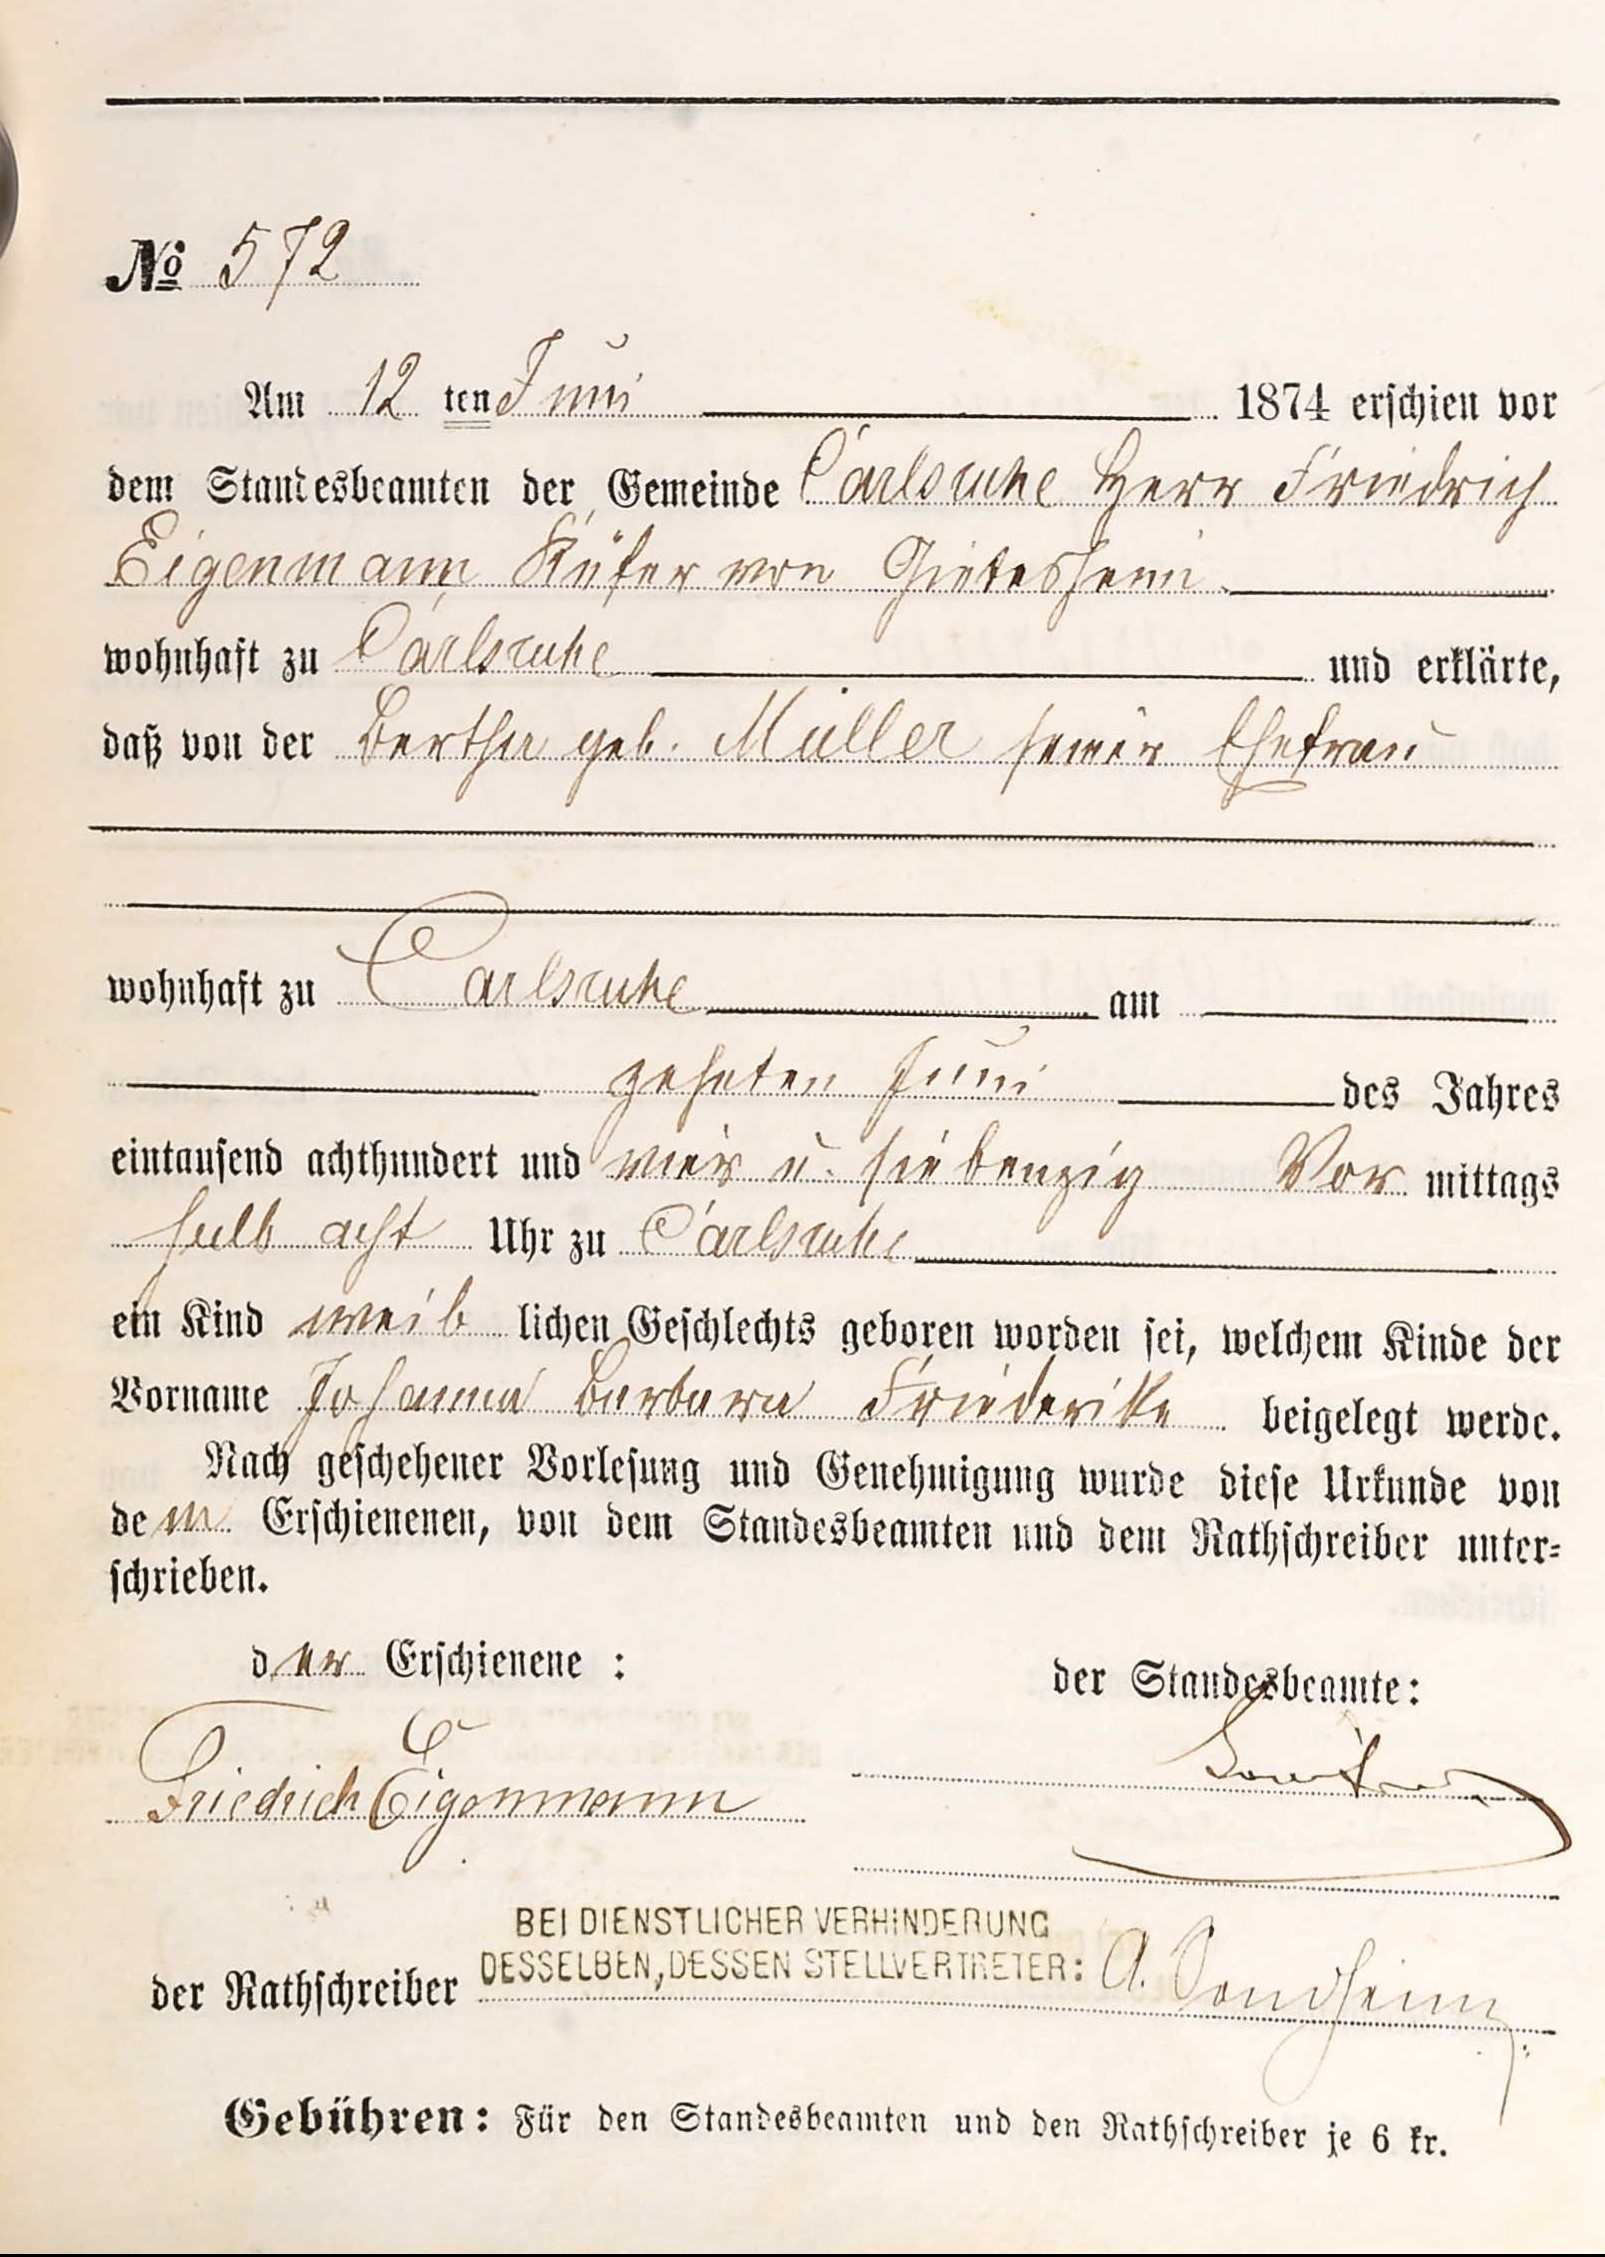 № 572
Am 12 ten Juni 1874 erschien vor
dem Standesbeamten der Gemeinde Carlsruhe Herr Friedrich
Eigenmann Küfer von
wohnhaft zu Carlsruhe und erklärte,
daß von der Bertha geb. Müller seiner Ehefrau
wohnhaft zu Carlsruhe am
zehnten Juni des Jahres
eintausend achthundert und vier u. siebenzig Vor mittags
halb acht Uhr zu Carlsruhe
ein Kind weib lichen Geschlechts geboren worden sei, welchem Kinde der
Vorname Johanna Barbara Friederike beigelegt werde.
Nach geschehener Vorlesung und Genehmigung wurde diese Urkunde von
dem Erschienenen, von dem Standesbeamten und dem Rathschreiber unter=
schrieben.
der Erschienene :
der Standesbeamte:
Friedrich Eigenmann
BEI DIENSTLICHER VERHINDERUNG
DESSELBEN, DESSEN STELLVERTRETER:
der Rathschreiber A. Sondheim
Gebühren: Für den Standesbeamten und den Rathschreiber je 6 kr.